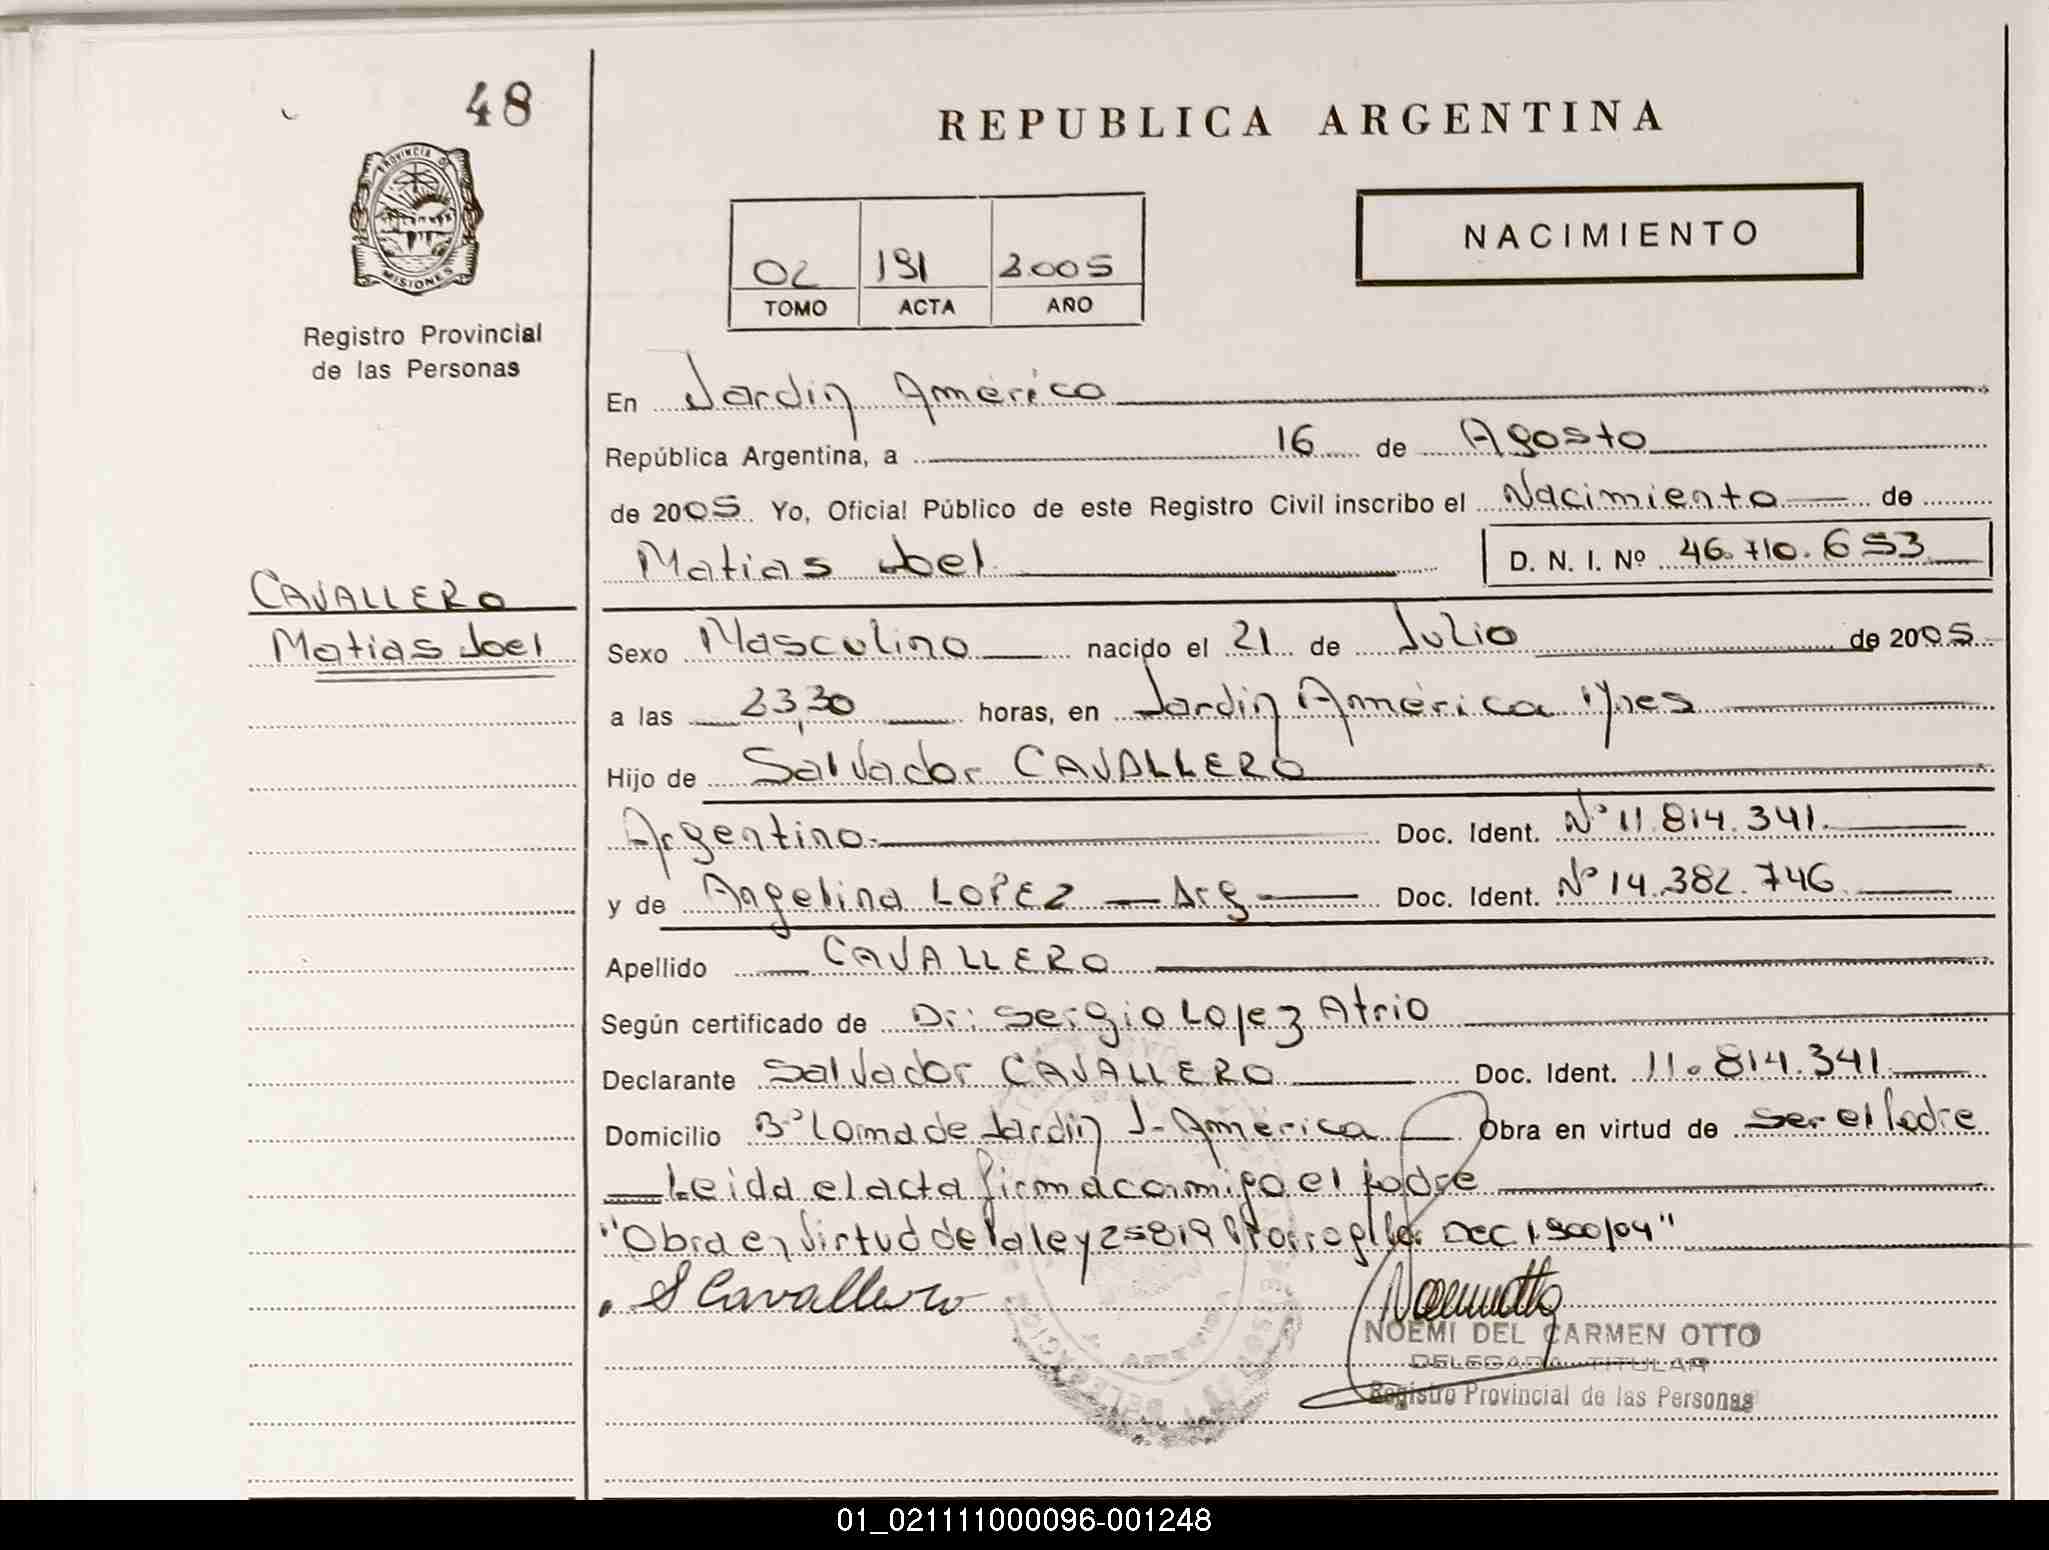 48
REPUBLICA ARGENTINA
PROVINCIA DE
MISIONES
Registro Provincial
de las Personas
NACIMIENTO
02 191 2005
TOMO ACTA AÑO
En Jardin América
República Argentina, a 16 de Agosto
de 2005 Yo, Oficial Público de este Registro Civil inscribo el Nacimiento de
Matias Joel D. N. I. Nº 46.710.653
CAVALLERO
Matias Joel
Sexo Masculino nacido el 21 de Julio de 2005
a las 23,30 horas, en Jardin América Mnes
Hijo de Salvador CAVALLERO
Argentino Doc. Ident. Nº 11.814.341
y de Angelina LOPEZ Arg Doc. Ident. Nº 14.382.746
Apellido CAVALLERO
Según certificado de Dr: Sergio Lopez Atrio
Declarante Salvador CAVALLERO Doc. Ident. 11.814.341
Domicilio Bº Loma de Jardin J. América Obra en virtud de ser el Padre
Leida el acta firma conmigo el padre
"Obra en virtud de la ley 25819 Dec 1.900/04"
S Cavallero
NOEMI DEL CARMEN OTTO
DELEGADA TITULAR
Registro Provincial de las Personas
01_021111000096-001248